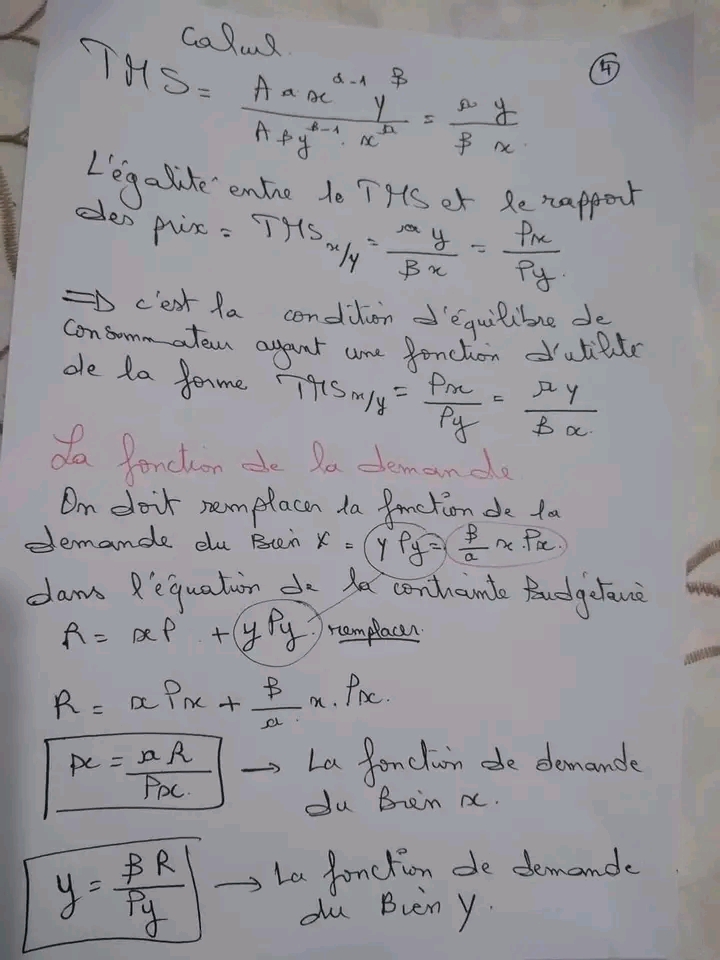 Calcul.
④
TMS = A a x^(α-1) y^β / A β y^(β-1) . x^α = α y / β x.
L'égalité entre le TMS et le rapport
des prix = TMS x/y = α y / β x = Px / Py.
=> c'est la condition d'équilibre de
consommateur ayant une fonction d'utilité
de la forme TMS x/y = Px / Py = α y / β x.
La fonction de la demande
On doit remplacer la fonction de la
demande du Bien X = y Py = β/a x Px.
dans l'équation de la contrainte Budgétaire
R = xP + y Py. remplacer.
R = x Px + β/a. x. Px.
x = a R / Px. → La fonction de demande
du Bien x.
y = β R / Py → La fonction de demande
du Bien y.